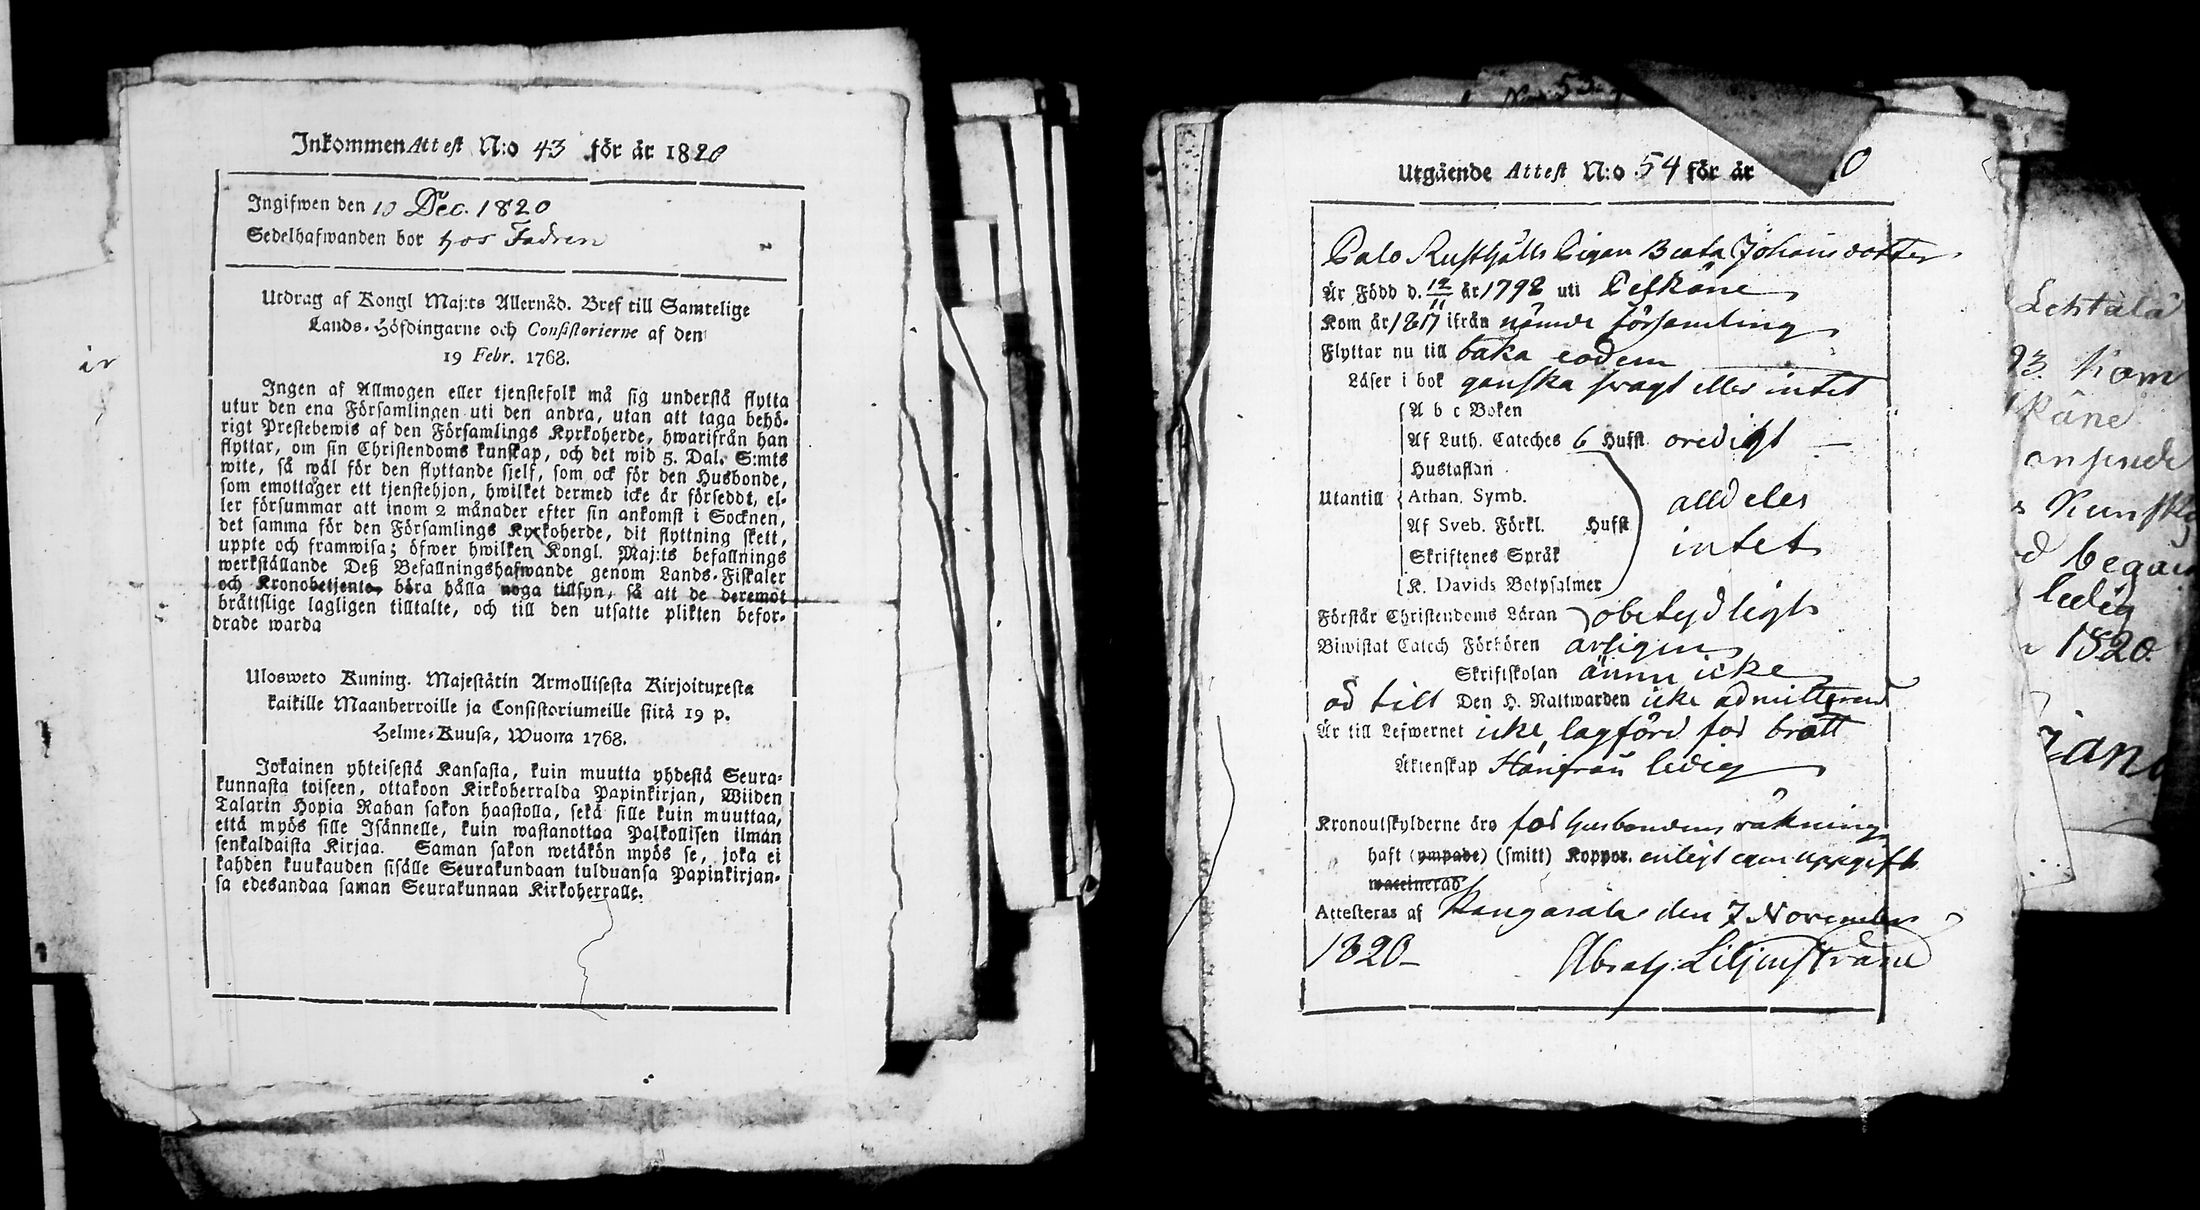 Inkommen Attest N:o 43 för år 1820
Ingifwen den 10 Dec. 1820
Sedelhafwanden bor hos Fadren
Utdrag af Kongl Maj:ts Allernåd. Bref till Samtelige
Lands-Höfdingarne och Consistorierne af den
19 Febr. 1768.
Ingen af Allmogen eller tjenstefolk må sig understå flytta
utur den ena Församlingen uti den andra, utan att taga behö-
rigt Prestebewis af den Församlings Kyrkoherde, hwarifrån han
flyttar, om sin Christendoms kunskap, och det wid 5. Dal. S:mts
wite, så wäl för den flyttande sjelf, som ock för den Husbonde,
som emottager ett tjenstehjon, hwilket dermed icke är försedt, el-
ler försummar att inom 2 månader efter sin ankomst i Socknen,
det samma för den Församlings Kyrkoherde, dit flyttning skett,
uppte och framwisa; öfwer hwilken Kongl. Maj:ts befallnings
werkställande Deß Befallningshafwande genom Lands-Fiskaler
och Kronobetjente, böra hålla noga tillsyn, så att de deremot
bråttslige lagligen tilltalte, och till den utsatte plikten befor-
drade warda
Ulosweto Kuning. Majestätin Armollisesta Kirjoituxesta
kaikille Maanherroille ja Consistoriumeille siitä 19 p.
Helme-Kuusa, Wuonna 1768.
Jokainen yhteisestä Kansasta, kuin muutta yhdestä Seura-
kunnasta toiseen, ottakoon Kirkoherralda Papinkirjan, Wiiden
Talarin Hopia Rahan sakon haastolla, sekä sille kuin muuttaa,
että myös sille Isännelle, kuin wastanottaa Palkollisen ilman
senkaldaista Kirjaa. Saman sakon wetäkön myös se, joka ei
kahden kuukauden sisälle Seurakundaan tulduansa Papinkirjan-
sa edesandaa saman Seurakunnan Kirkoherralle.
Utgående Attest N:o 54 för år 0
Palo Rusthålls Pigan Beata Johansdotter
Är Född d. 12/11 år 1798 uti Pelkäne
Kom år 1817 ifrån nämde församling
Flyttar nu till baka eodem
Läser i bok ganska svagt eller intet
A b c Boken
Af Luth. Cateches 6 Hufst oredigt
Hustaflan
Utantill Athan. Symb. alldeles
Af Sveb. Förkl. Hufst
Skriftenes Språk intet
K. Davids Botpsalmer
Förstår Christendoms Läran obetydligt
Biwistat Catech Förhören årligen
Skriftskolan ännu icke
od till Den H. Nattwarden icke admitterad
Är till Lefwernet icke lagförd för brott
Äktenskap Hänifrån ledig
Kronoutskylderne äro för husbondens räkning
haft (ympade) (smitt) Koppor. enligt egen uppgift
waccinerad
Attesteras af Kangasala den 7 November
1820 Abrah. Liljenstrand
Lehtala
93. Kom
käne
Kunska
ledig
1820.